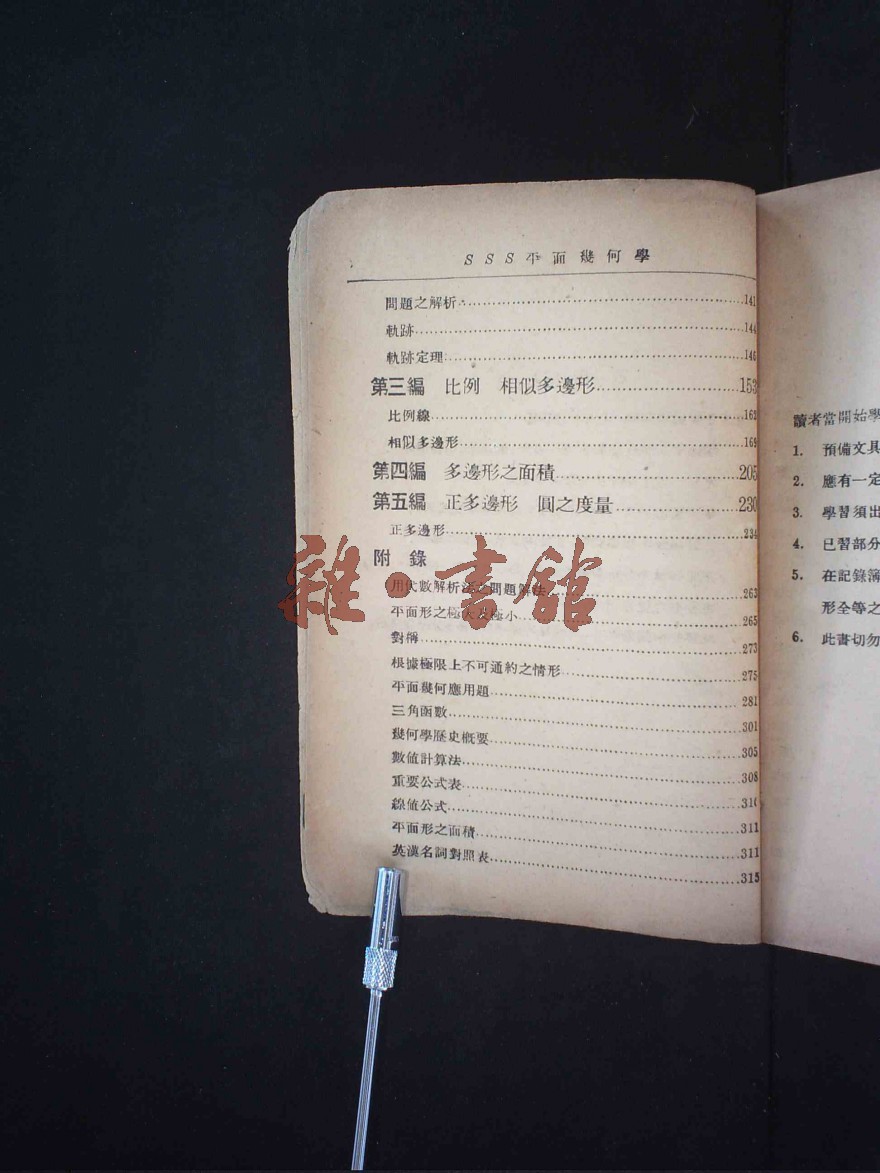 SSS平面幾何學
問題之解析 141
軌跡 144
軌跡定理 146
第三編 比例 相似多邊形 153
比例線 162
相似多邊形 169
第四編 多邊形之面積 205
第五編 正多邊形 圓之度量 230
正多邊形 234
附錄
用代數解析法之問題解法 263
平面形之極大及極小 265
對稱 273
根據極限上不可通約之情形 275
平面幾何應用題 281
三角函數 301
幾何學歷史概要 305
數值計算法 308
重要公式表 310
線值公式 311
平面形之面積 311
英漢名詞對照表 315
雜·書館
讀者當開始學
1. 預備文具
2. 應有一定
3. 學習須出
4. 已習部分
5. 在記錄簿
形全等之
6. 此書切勿